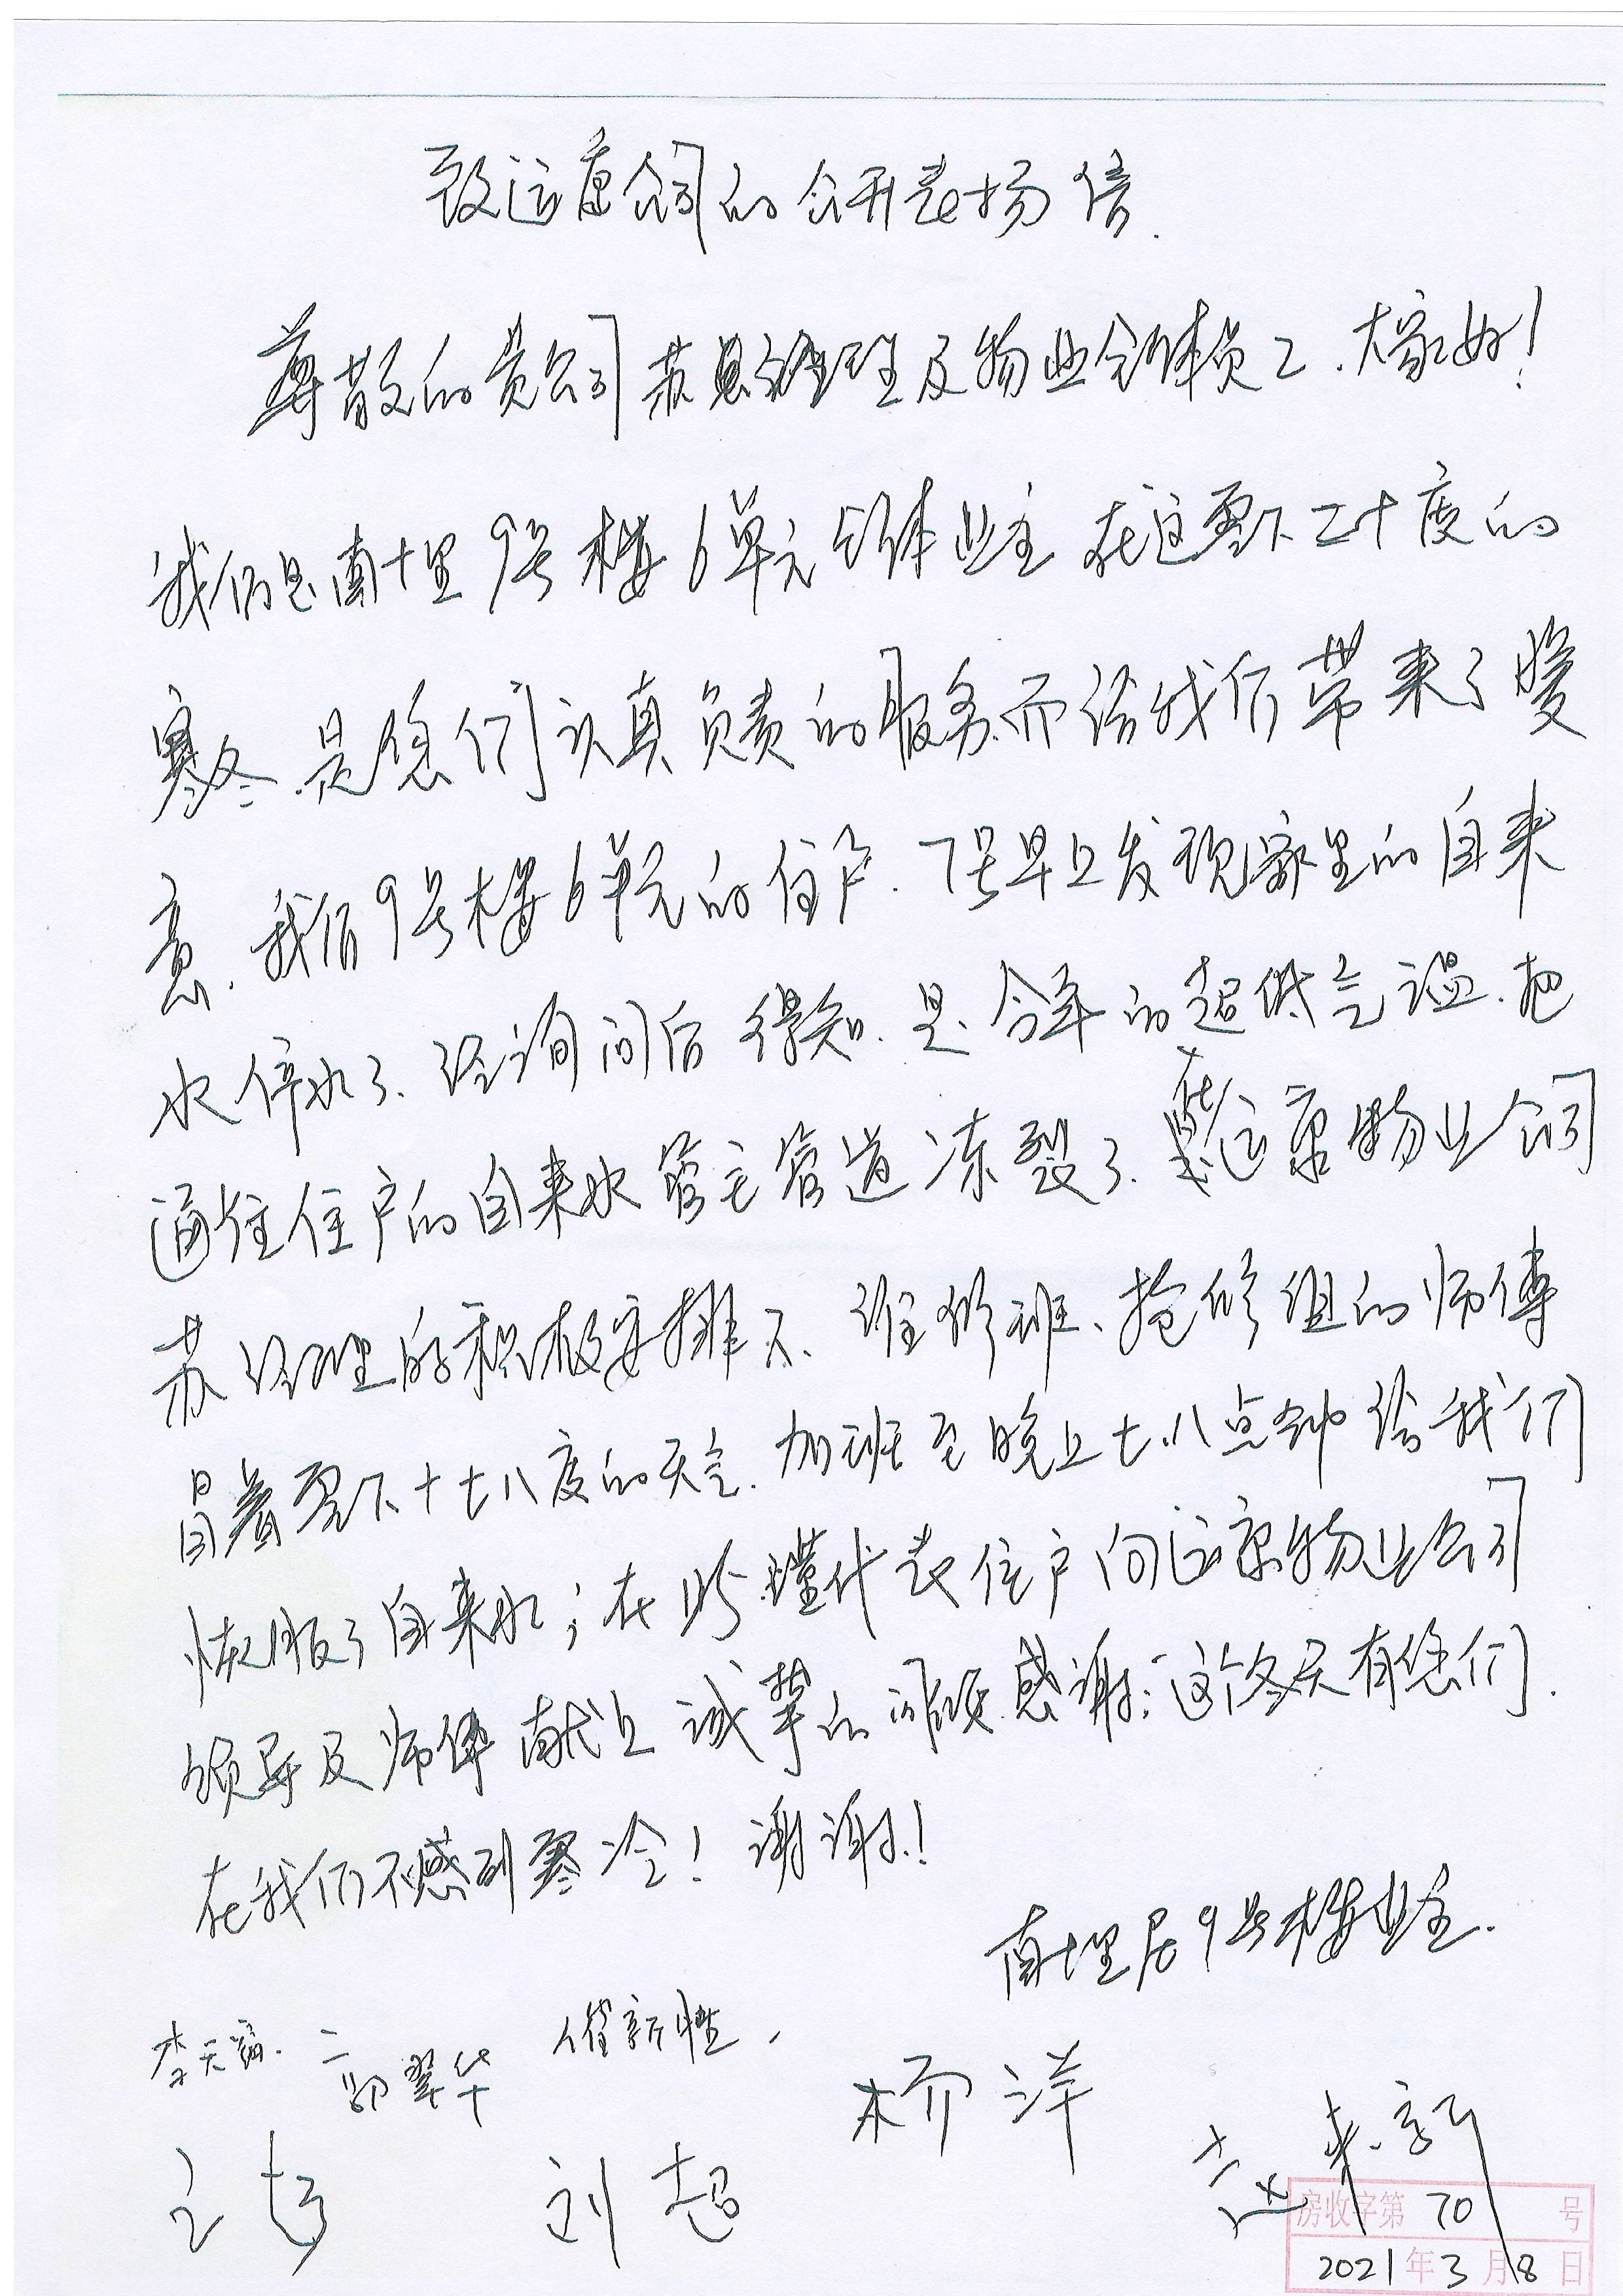 致远康公司的公开表扬信.
尊敬的贵公司苏总经理及物业全体员工.大家好!
我们是南十里9号楼6单元全体业主 在这零下二十度的
寒冬.是您们认真负责的服务.而给我们带来了暖
意.我们9号楼6单元的住户.7号早上发现家里的自来
水停水了.经询问后得知.是.今年的超低气温.把
通往住户的自来水管主管道冻裂了.在远康物业公司
苏经理的积极安排下、维修班、抢修组的师傅
冒着零下十七八度的天气.加班至晚上七.八点钟给我们
恢服了自来水;在此.谨代表住户向远康物业公司
领导及师傅献上诚挚的感谢:这个冬天有您们.
在我们不感到寒冷!谢谢!
南十里居9号楼业主.
李天 郭翠华 崔新胜
杨洋
刘超 赵来新
房收字第 70 号
2021年3月8日